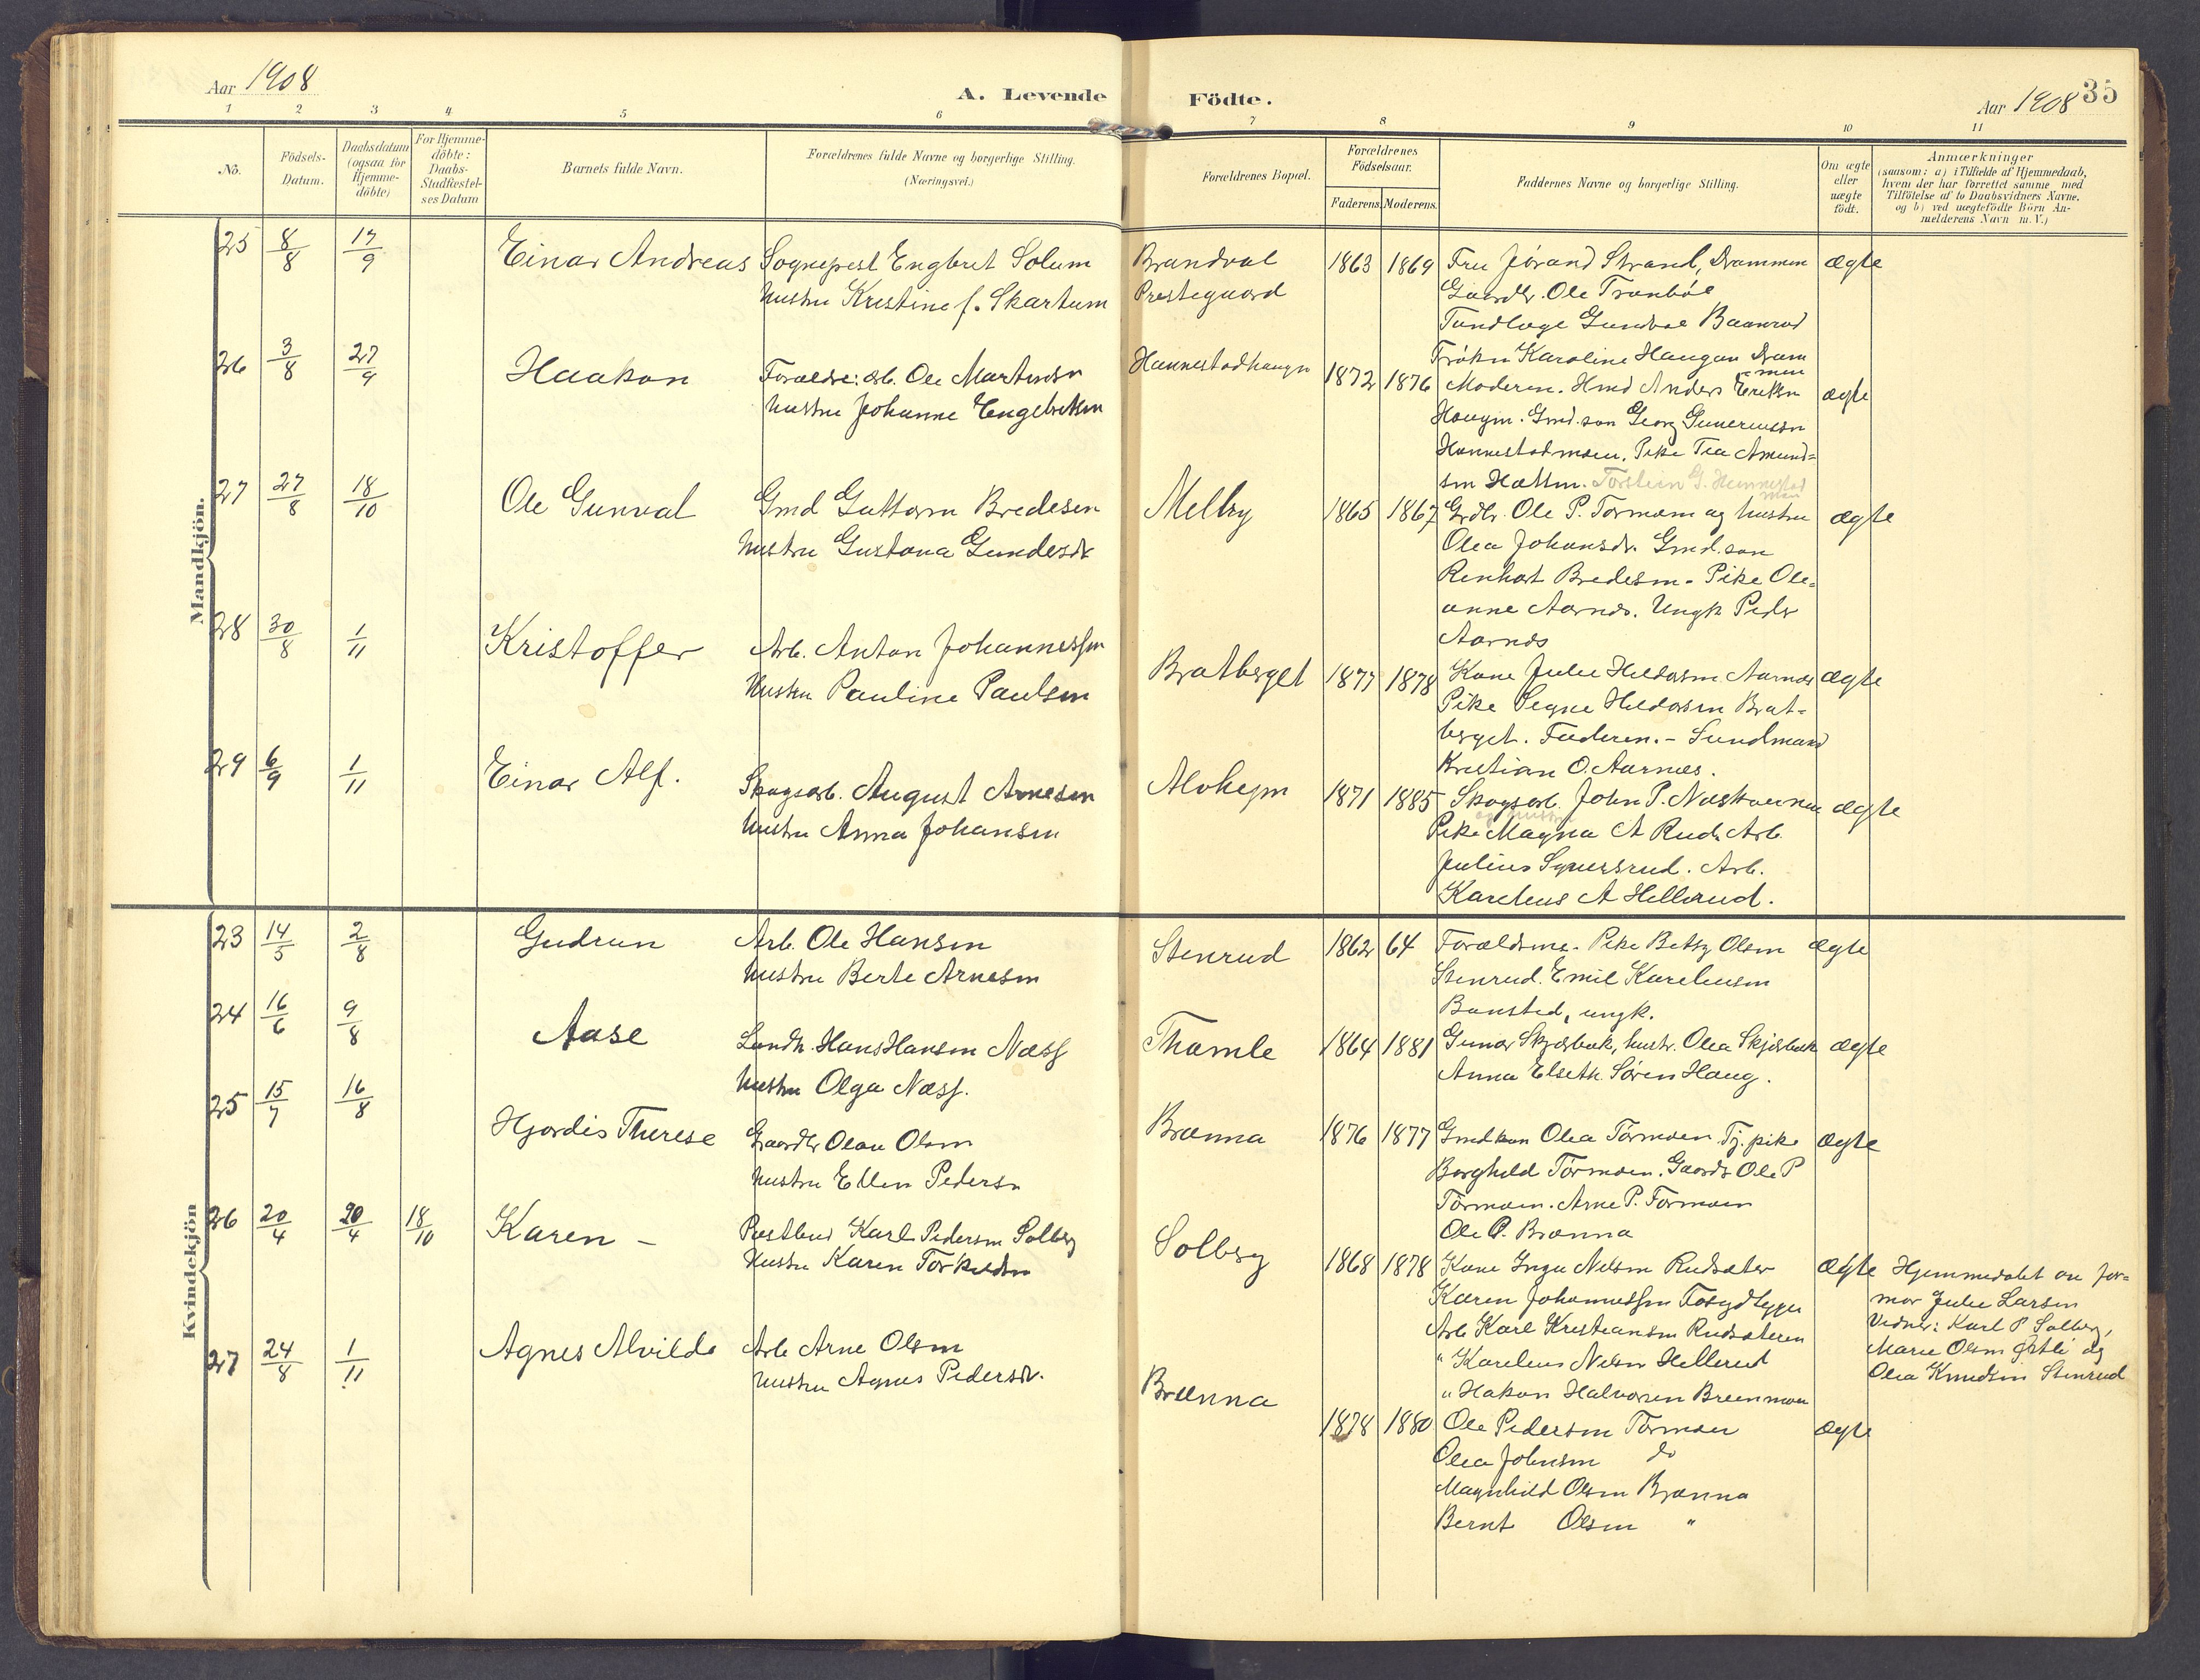 Aar 1908
A. Levende
Födte.
Aar 1908
35
1 2 3 4 5 6 7 8 9 10 11
No.
Födsels-
Datum.
Daabsdatum
(ogsaa for
Hjemme-
döbte)
For Hjemme-
döbte:
Daabs-
Stadfæstel-
ses Datum
Barnets fulde Navn.
Forældrenes fulde Navne og borgerlige Stilling.
(Næringsvei.)
Forældrenes Bopæl.
Forældrenes
Födselsaar.
Faderens. Moderens.
Faddernes Navne og borgerlige Stilling.
Om ægte
eller
uægte
födt.
Anmærkninger
(saasom: a) i Tilfælde af Hjemmedaab,
hvem der har forrettet samme med
Tilföielse af to Daabsvidners Navne.
og b) ved uægtefödte Börn An-
melderens Navn m. V.)
Mandkjön.
25 8/8 17/9 Einar Andreas Sogneprest Engbret Solum
hustru Kristine f. Skartum
Brandval
Prestegaard
1863 1869 Fru Jørand Strand, Drammen ægte
Gaardbr. Ole Tranbøl
Tandlæge Gunval Baanrud
Frøken Karoline Haugan Dram
men
26 3/8 27/9 Haakon Forældre: arb. Ole Martinsen
hustru Johanne Engebretsen
Hannestadhaugen
1872 1876 Moderen. Hmd Anders Eriksen ægte
Haugen. Gmd.søn Georg Guneriussen
Hannestadmoen. Pike Tea Amund-
sen Hætten. Torstein G. Hannestad
moen
27 27/8 18/10 Ole Gunval Gmd Guttorm Bredesen
hustru Gustava Gundesdr
Melby
1865 1867 Grdbr. Ole P. Tormoen og hustru ægte
Olea Johansdr. Gmd.søn
Renhart Bredesen - Pike Ole-
anne Aarnes. Ungk Peder
Aarnes
28 30/8 1/11 Kristoffer Arb. Anton Johannessen
Hustru Pauline Paulsen
Bratberget
1877 1878 Kone Julie Hildorsen Aarnes ægte
Pike Signe Hildorsen Brat-
berget. Faderen. - Sundmand
Kristian O. Aarnes.
29 6/9 1/11 Einar Alf. Skogsarb. August Arnesen
hustru Anna Johansen
1871 1885 Skogsarb. John P. Næstvernæn ægte
og hustru
Pike Magna A Rud. Arb.
Julius Syversrud. Arb.
Karelius A Hellerud.
Kvindekjön
23 14/5 2/8 Gudrun Arb. Ole Hansen
hustru Berte Arnesen
Stenrud
1862 64 Forældrene. Pike Betsy Olsen ægte
Stenrud. Emil Kareliusen
Banstad, ungk.
24 16/6 9/8 Aase Landh. Hans Hansen Næss
hustru Olga Næss.
Thomle
1864 1881 Gunar Skjærbæk, hustr. Olea Skjærbæk ægte
Anna Elseth. Søren Haug.
25 15/7 16/8 Hjordis Therese Gaardbr Olau Olsen
hustru Ellen Pedersn
Brænna
1876 1877 Gmdkon Olea Tørmoen. Tj. pike ægte
Borghild Tørmoen. Gaardb Ole P
Tørmoen. Arne P. Tørmoen
Ole P. Brænna
26 20/4 20/4 18/10 Karen - Postbud Karl Pedersen Solberg
Hustru Karen Torkildsen
Solberg
1868 1878 Kone Inga Nilsen Rudsæter ægte
Karen Johannessen
Arb Karl Kristiansen Rudsæteren
" Karelius Nilsen Hellerud
" Hakon Halvorsen Breenmoen
Hjemmedøbt av for-
mor Julie Larsen
Vidner: Karl P Solberg,
Marie Olsen Østli og
Olea Knudsen Stenrud
27 24/8 1/11 Agnes Alvilde Arb Arne Olsen
hustru Agnes Pedersdr.
Brænna
1878 1880 Ole Pedersen Tormoen ægte
Olea Johnsen do
Magnhild Olsen Brænna
Bernt Olsen "